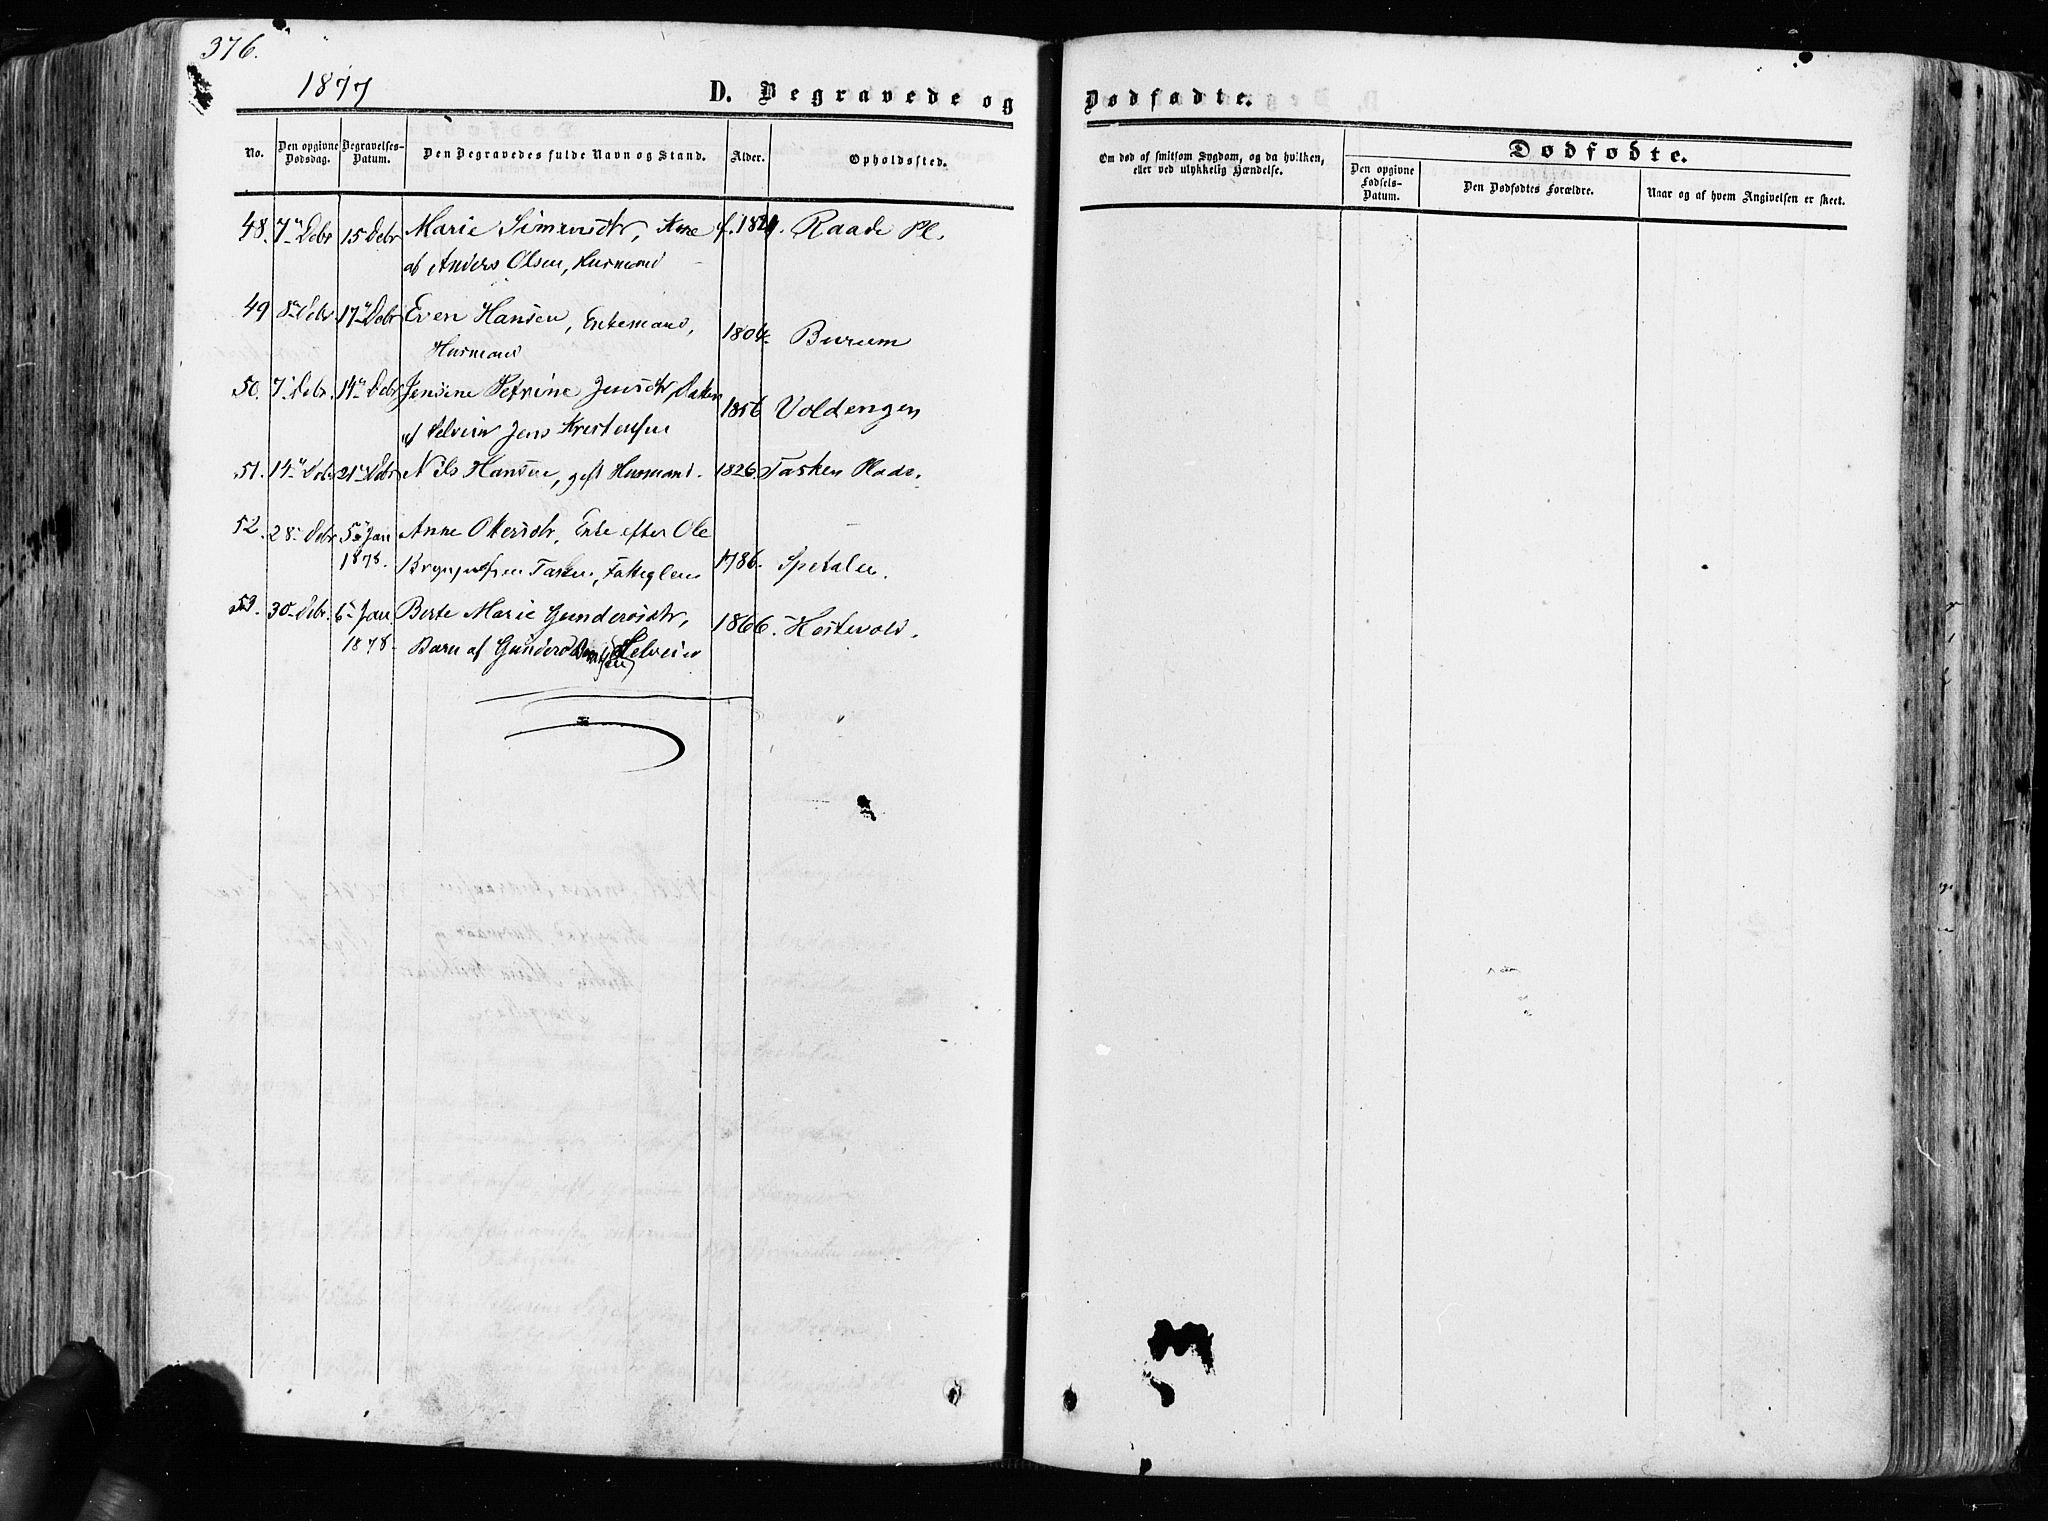 376.
1877
D. Begravede og Dødfødte.
No.
Den opgivne Dødsdag.
Begravelses-Datum.
Den Begravedes fulde Navn og Stand.
Alder.
Opholdssted.
Om død af smitsom Sygdom, og da hvilken, eller ved ulykkelig Hændelse.
Dødfødte.
Den opgivne Fødsels-Datum.
Den Dødfødtes Forældre.
Naar og af hvem Angivelsen er skeet.
48. 7 Debr 15 Debr Marie Simensdtr, Kone f. 182 Raade Pl.
af Anders Olsen, Husmand
49 8 Debr 17 Debr Even Hansen, Enkemand, 1804. Burum
Husmand
50. 7 Debr. 14 Debr Jensine Petrine Jensdtr, Datter 1856 Voldengen
af Selveier Jens Kristensen
51. 14 Debr 21 Debr Nils Hansen, gift Husmand. 1826. Tasken Rade.
52. 28 Debr 5 Jan Anne Olersdtr, Enke efter Ole
1878. Tasken, Fattiglem 1786. Spetalen.
53. 30 Debr. 6 Jan Berte Marie Gundersdtr, 1866. Hestevold.
1878. Barn af Gunder Selveier